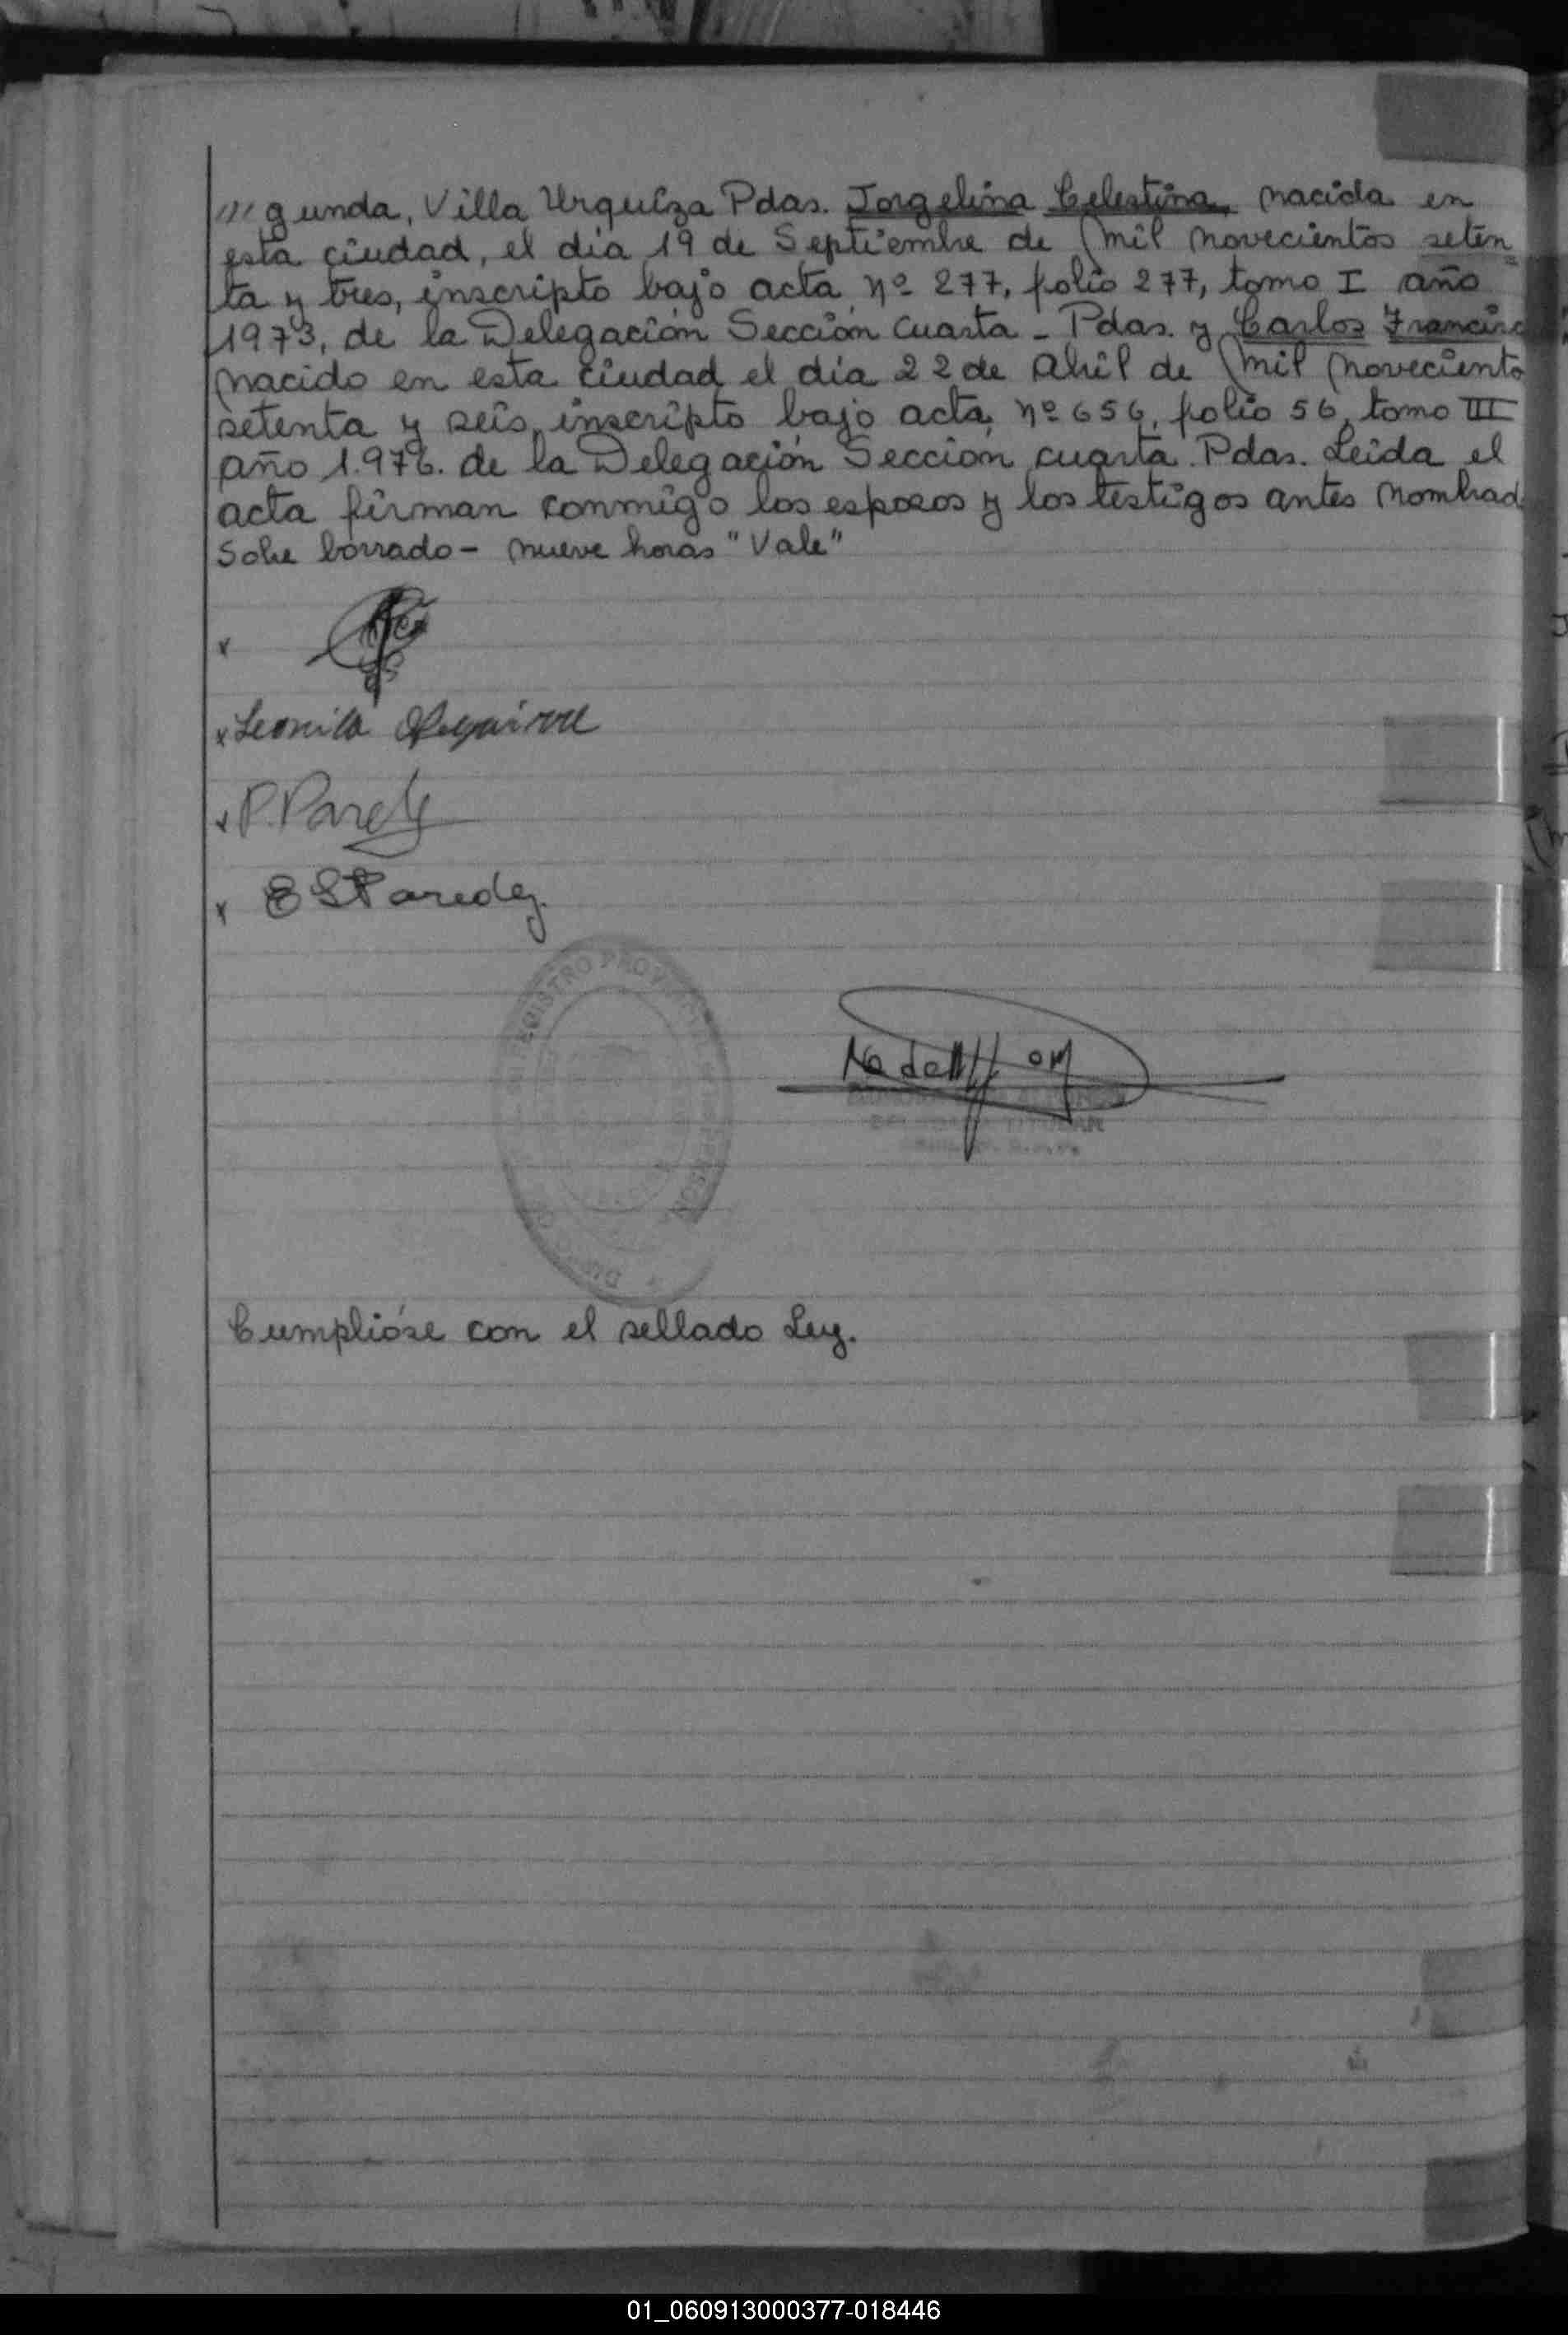 /// gunda, Villa Urquiza Pdas. Jorgelina Celestina, nacida en
esta ciudad, el día 19 de Septiembre de mil novecientos seten
ta y tres, inscripto bajo acta nº 277, folio 277, tomo I año
1973, de la Delegación Sección Cuarta - Pdas. y Carlos Francisc
nacido en esta ciudad el día 22 de Abril de mil noveciento
setenta y seis, inscripto bajo acta nº 656, folio 56, tomo III
año 1.976. de la Delegación Sección cuarta. Pdas. Leida el
acta firman conmigo los esposos y los testigos antes nombrad
Sobre borrado - nueve horas "Vale"
x
x Leonila Aguirre
x P. Paredes
x E S Paredez.
REGISTRO PROV
PERSON
TITULAR
Cumplióse con el sellado Ley.
01_060913000377-018446